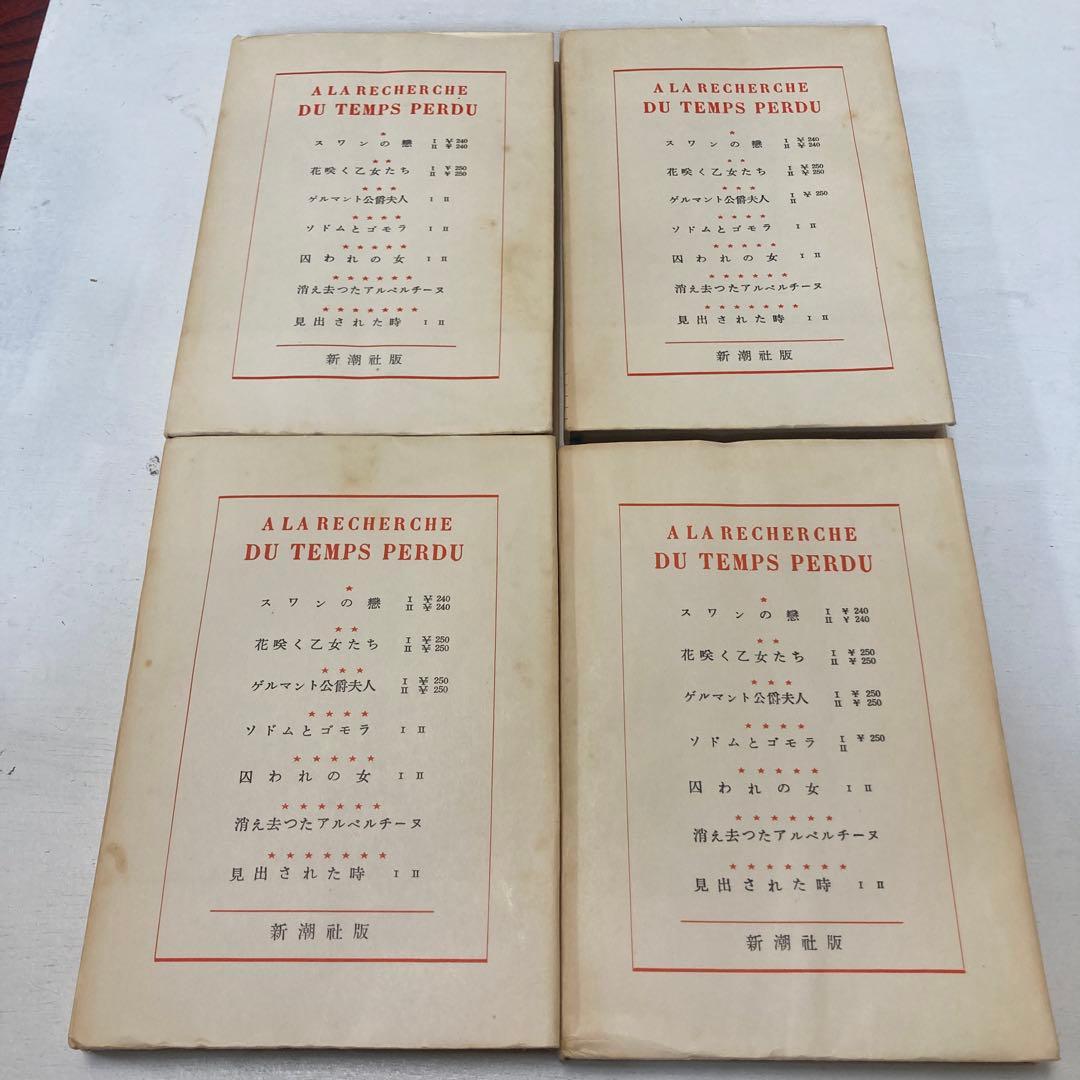 A LA RECHERCHE
DU TEMPS PERDU
★
スワンの戀 I ¥240
II ¥240
★★
花咲く乙女たち I ¥250
II ¥250
★★★
ゲルマント公爵夫人 I II
★★★★
ソドムとゴモラ I II
★★★★★
囚われの女 I II
★★★★★★
消え去つたアルベルチーヌ
★★★★★★★
見出された時 I II
新潮社版
A LA RECHERCHE
DU TEMPS PERDU
★
スワンの戀 I ¥240
II ¥240
★★
花咲く乙女たち I ¥250
II ¥250
★★★
ゲルマント公爵夫人 I ¥250
II
★★★★
ソドムとゴモラ I II
★★★★★
囚われの女 I II
★★★★★★
消え去つたアルベルチーヌ
★★★★★★★
見出された時 I II
新潮社版
A LA RECHERCHE
DU TEMPS PERDU
★
スワンの戀 I ¥240
II ¥240
★★
花咲く乙女たち I ¥250
II ¥250
★★★
ゲルマント公爵夫人 I ¥250
II ¥250
★★★★
ソドムとゴモラ I II
★★★★★
囚われの女 I II
★★★★★★
消え去つたアルベルチーヌ
★★★★★★★
見出された時 I II
新潮社版
A LA RECHERCHE
DU TEMPS PERDU
★
スワンの戀 I ¥240
II ¥240
★★
花咲く乙女たち I ¥250
II ¥250
★★★
ゲルマント公爵夫人 I ¥250
II ¥250
★★★★
ソドムとゴモラ I ¥250
II
★★★★★
囚われの女 I II
★★★★★★
消え去つたアルベルチーヌ
★★★★★★★
見出された時 I II
新潮社版